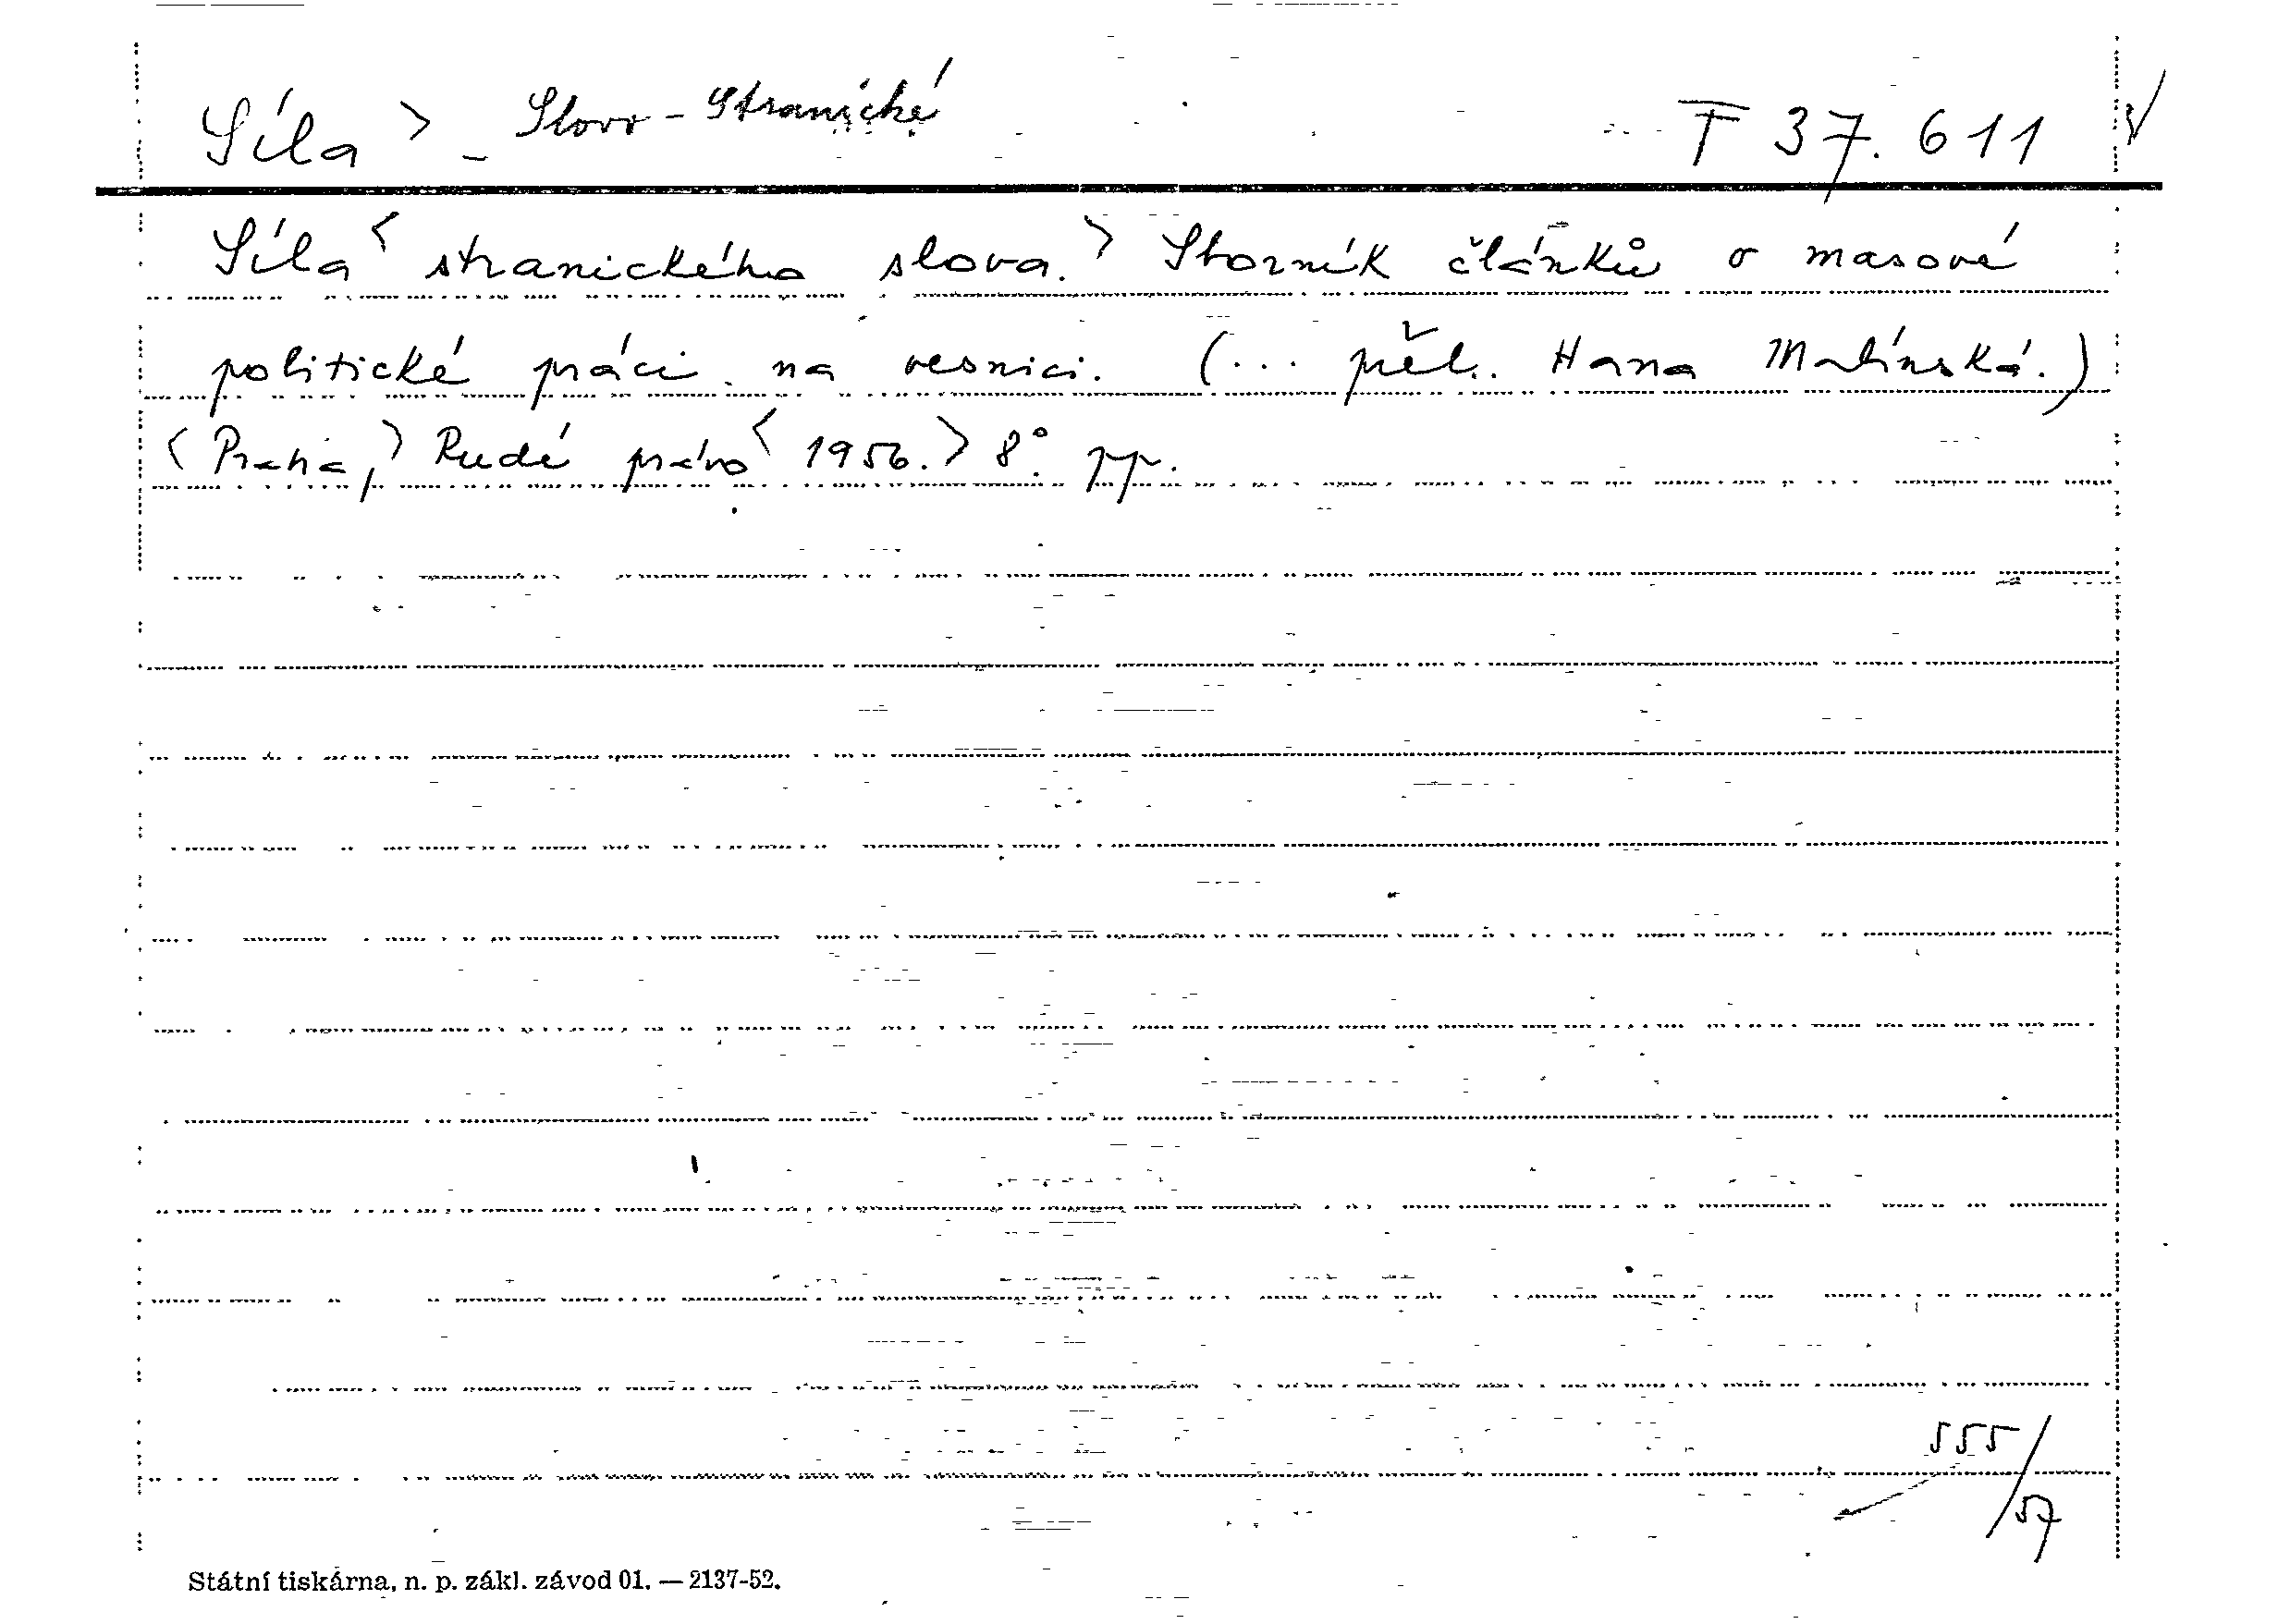 Síla > - Slovo - Stranické T 37.611
Síla < stranického slova. > Sborník článků o masové
politické práci na vesnici. (... přel. Hana Malínská.)
<Praha,> Rudé právo < 1956. > 8° pp.
555/57
Státní tiskárna, n. p. zákl. závod 01. — 2137-52.